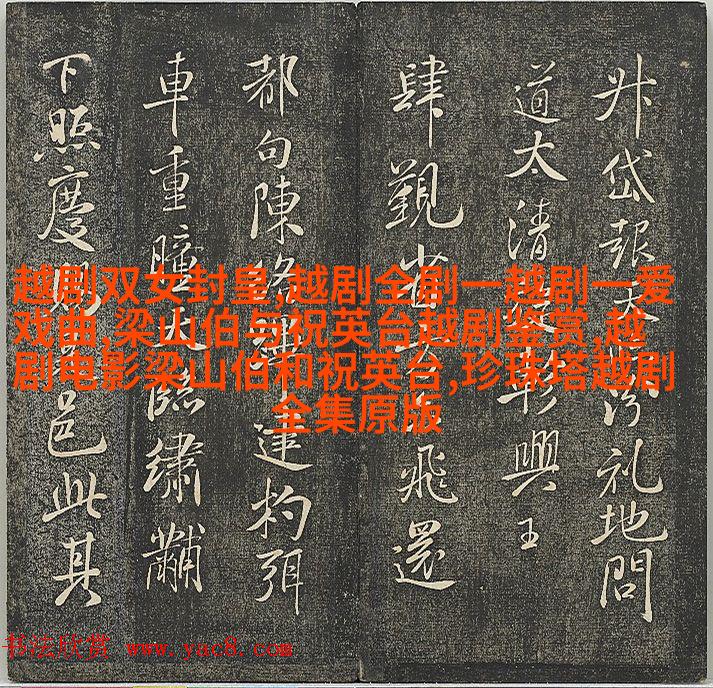 越剧双女封皇,越剧全剧一越剧一爱
戏曲,梁山伯与祝英台越剧鉴赏,越
剧电影梁山伯和祝英台,珍珠塔越剧
全集原版
升岱報天汾礼地問
道太清興王
肆觀飛還
都句陳絡連杓弭
車重瞳臨繡黼
下照慶邑此其
书法欣赏 www.yac8.com